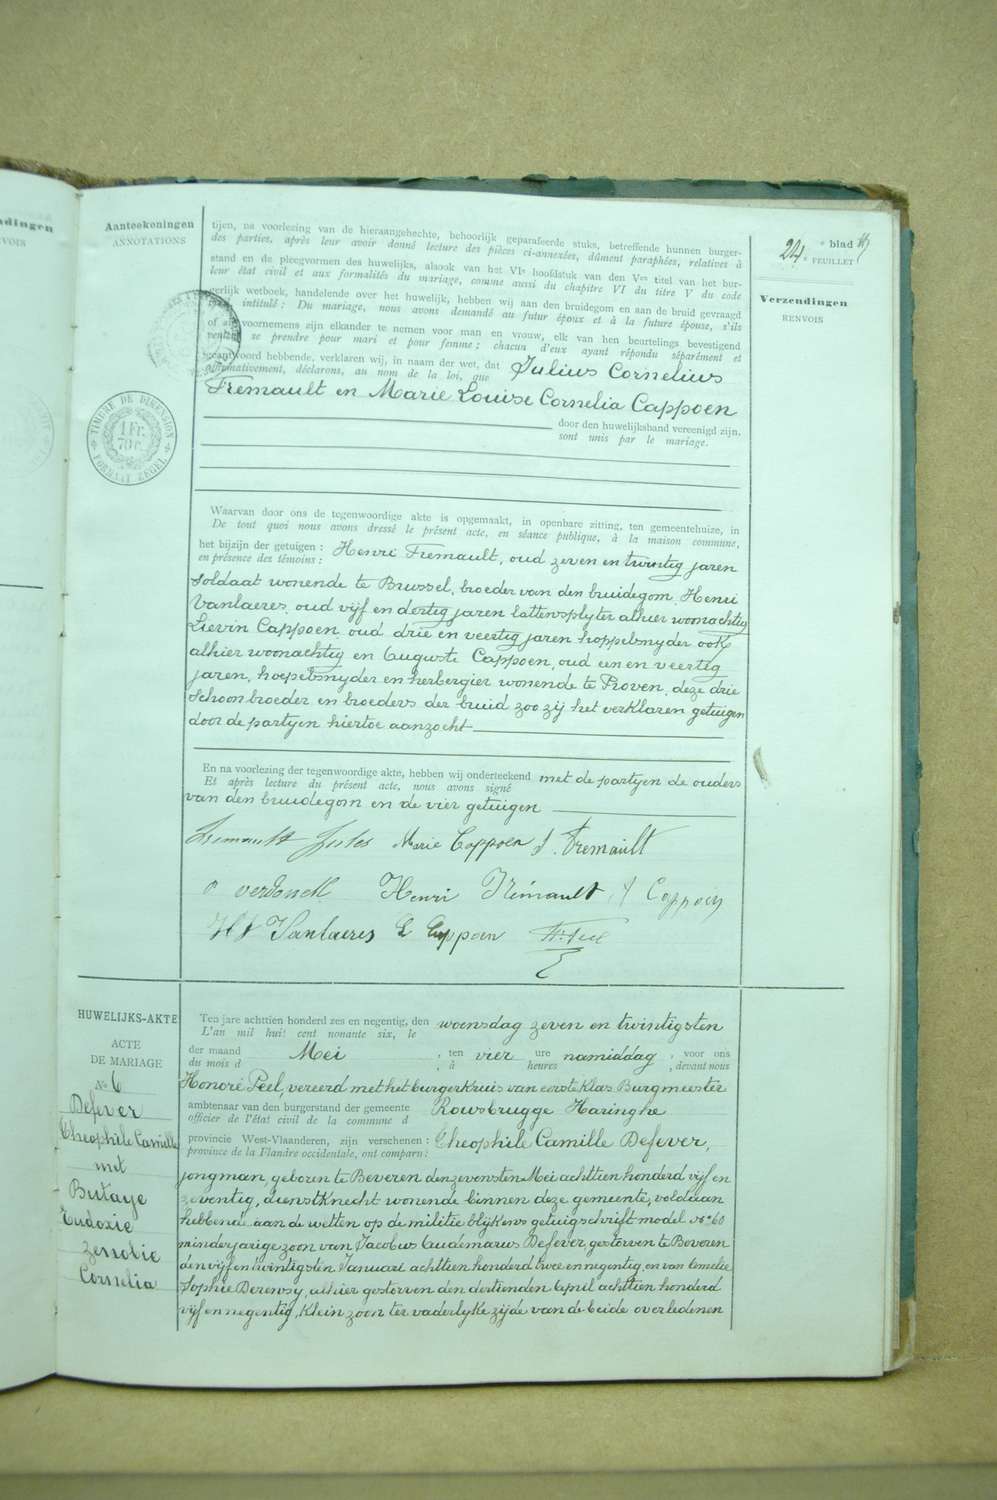 ndingen
VOIS
Aanteekeningen
ANNOTATIONS
24e blad
e FEUILLET
Verzendingen
RENVOIS
TIMBRE DE DIMENSION
1 Fr.
70 c.
FORMAAT ZEGEL
tijen, na voorlezing van de hieraangehechte, behoorlijk geparafeerde stuks, betreffende hunnen burger-
des parties, après leur avoir donné lecture des pièces ci-annexées, dûment paraphées, relatives à
stand en de pleegvormen des huwelijks, alsook van het VIe hoofdstuk van den Ven titel van het bur-
leur état civil et aux formalités du mariage, comme aussi du chapitre VI du titre V du code
gerlijk wetboek, handelende over het huwelijk, hebben wij aan den bruidegom en aan de bruid gevraagd
intitulé : Du mariage, nous avons demandé au futur époux et à la future épouse, s'ils
of zij voornemens zijn elkander te nemen voor man en vrouw, elk van hen beurtelings bevestigend
veulent se prendre pour mari et pour femme ; chacun d'eux ayant répondu séparément et
geantwoord hebbende, verklaren wij, in naam der wet, dat Julius Cornelius
affirmativement, déclarons, au nom de la loi, que
Fremault en Marie Louise Cornelia Cappoen
door den huwelijksband vereenigd zijn.
sont unis par le mariage.
Waarvan door ons de tegenwoordige akte is opgemaakt, in openbare zitting, ten gemeentehuize, in
De tout quoi nous avons dressé le présent acte, en séance publique, à la maison commune,
het bijzijn der getuigen : Henri Fremault, oud zeven en twintig jaren
en présence des témoins :
Soldaat wonende te Brussel, broeder van den bruidegom, Henri
Vanlaeres, oud vijf en dertig jaren lattensplyter alhier woonachtig
Lievin Cappoen oud drie en veertig jaren hoppesnyder ook
alhier woonachtig en Auguste Cappoen, oud een en veertig
jaren, hoepelsnyder en herbergier wonende te Proven, deze drie
Schoonbroeder en broeders der bruid zoo zij het verklaren getuigen
door de partyen hiertoe aanzocht
En na voorlezing der tegenwoordige akte, hebben wij onderteekend met de partyen de ouders
Et après lecture du présent acte, nous avons signé
van den bruidegom en de vier getuigen
Fremault Jules Marie Cappoen J. Fremault
Henri Frémault A Cappoen
Vanlaeres L Cappoen
HUWELIJKS-AKTE
ACTE
DE MARIAGE
No 6
Defever
Theophile Camille
met
Butaye
Eudoxie
Zenobie
Cornelia
Ten jare achttien honderd zes en negentig, den woensdag zeven en twintigsten
L'an mil huit cent nonante six, le
der maand Mei ; ten vier ure namiddag, voor ons
du mois d ; à heures , devant nous
Honoré Peel, vereerd met het burgerkruis van eerste klas Burgmeester
ambtenaar van den burgerstand der gemeente Rousbrugge Haringhe
officier de l'état civil de la commune d
provincie West-Vlaanderen, zijn verschenen : Theophile Camille Defever,
province de la Flandre occidentale, ont comparu :
jongman, geboren te Beveren den zevensten Mei achttien honderd vijf en
zeventig, dienstknecht wonende binnen deze gemeente, voldaan
hebbende aan de wetten op de militie blijkens getuigschrift model No 60
minderjarige zoon van Jacobus Audemarus Defever, gestorven te Beveren
den vijf en twintigsten Januari achttien honderd twee en negentig en van Amelie
Sophie Derewsy, alhier gestorven den dertienden April achttien honderd
vijf en negentig, Klein zoon ter vaderlyke zijde van de beide overledenen